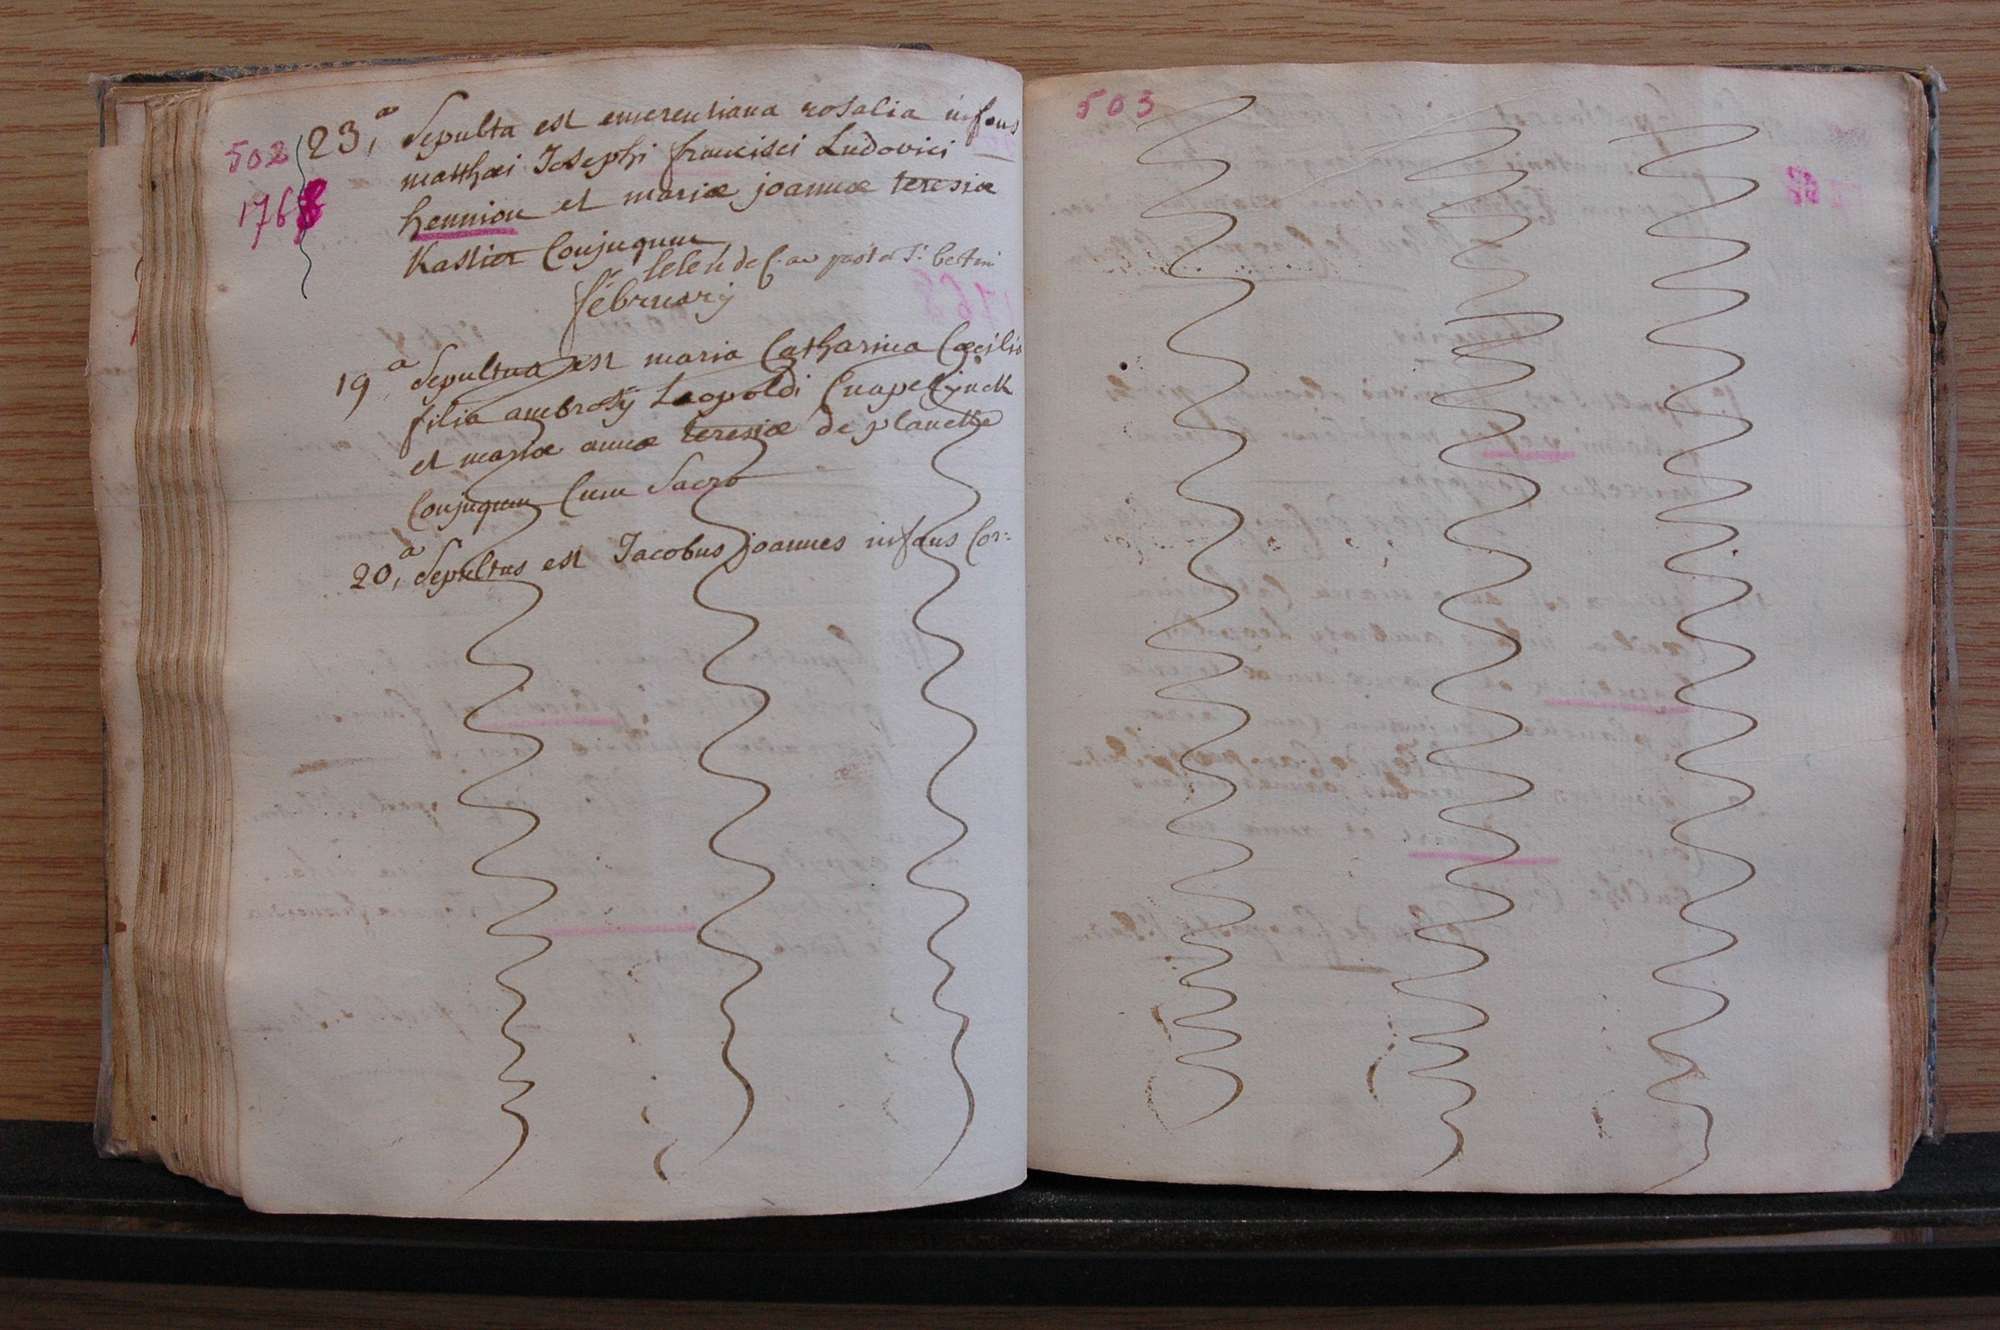 502
1768
23,a Sepulta est emerentiana rosalia infans
matthæi Josephi francisci Ludovici
hennion et mariæ joannæ teresiæ
Kastier Conjugum
februarij
19a Sepultua est maria Catharina Cæcilia
filia ambrosij Leopoldi Cnapelynck
et mariæ annæ teresiæ de planette
Conjugum Cum Sacro
20,a Sepultus est Jacobus joannes infans Cor:
503